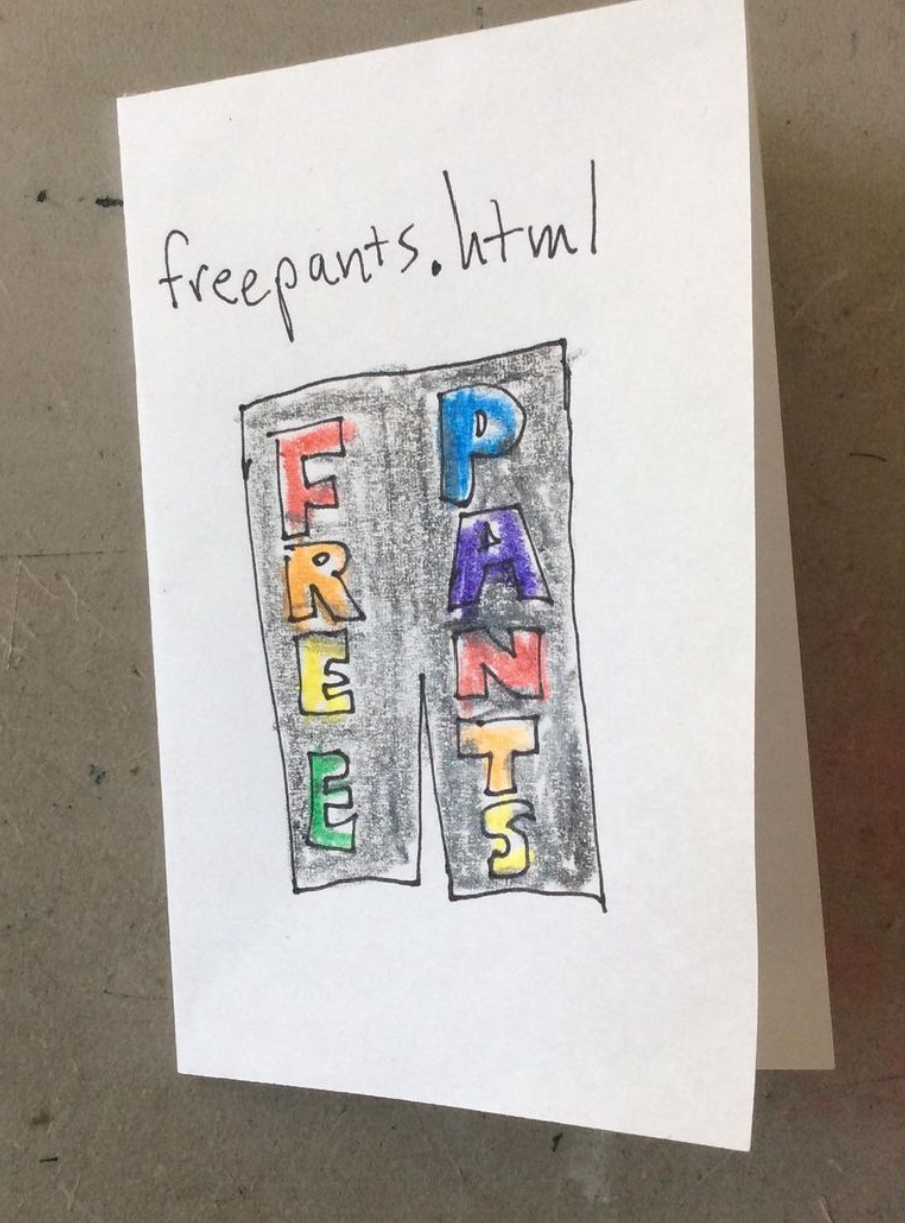 freepants.html
FREE
PANTS